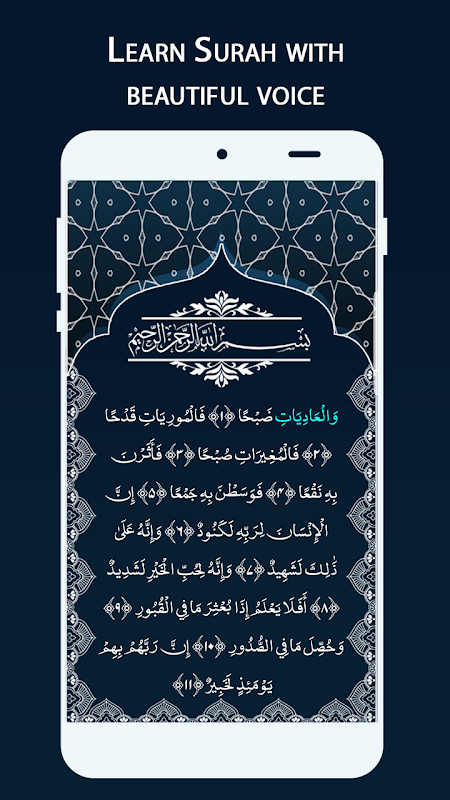 Learn Surah with
beautiful voice
بسم الله الرحمن الرحيم
وَالْعَادِيَاتِ ضَبْحًا ﴿١﴾ فَالْمُورِيَاتِ قَدْحًا
﴿٢﴾ فَالْمُغِيرَاتِ صُبْحًا ﴿٣﴾ فَأَثَرْنَ
بِهِ نَقْعًا ﴿۴﴾ فَوَسَطْنَ بِهِ جَمْعًا ﴿۵﴾ إِنَّ
الْإِنْسَانَ لِرَبِّهِ لَكَنُودٌ ﴿۶﴾ وَإِنَّهُ عَلَىٰ
ذَٰلِكَ لَشَهِيدٌ ﴿٧﴾ وَإِنَّهُ لِحُبِّ الْخَيْرِ لَشَدِيدٌ
﴿٨﴾ أَفَلَا يَعْلَمُ إِذَا بُعْثِرَ مَا فِي الْقُبُورِ ﴿٩﴾
وَحُصِّلَ مَا فِي الصُّدُورِ ﴿١٠﴾ إِنَّ رَبَّهُمْ بِهِمْ
يَوْمَئِذٍ لَخَبِيرٌ ﴿١١﴾